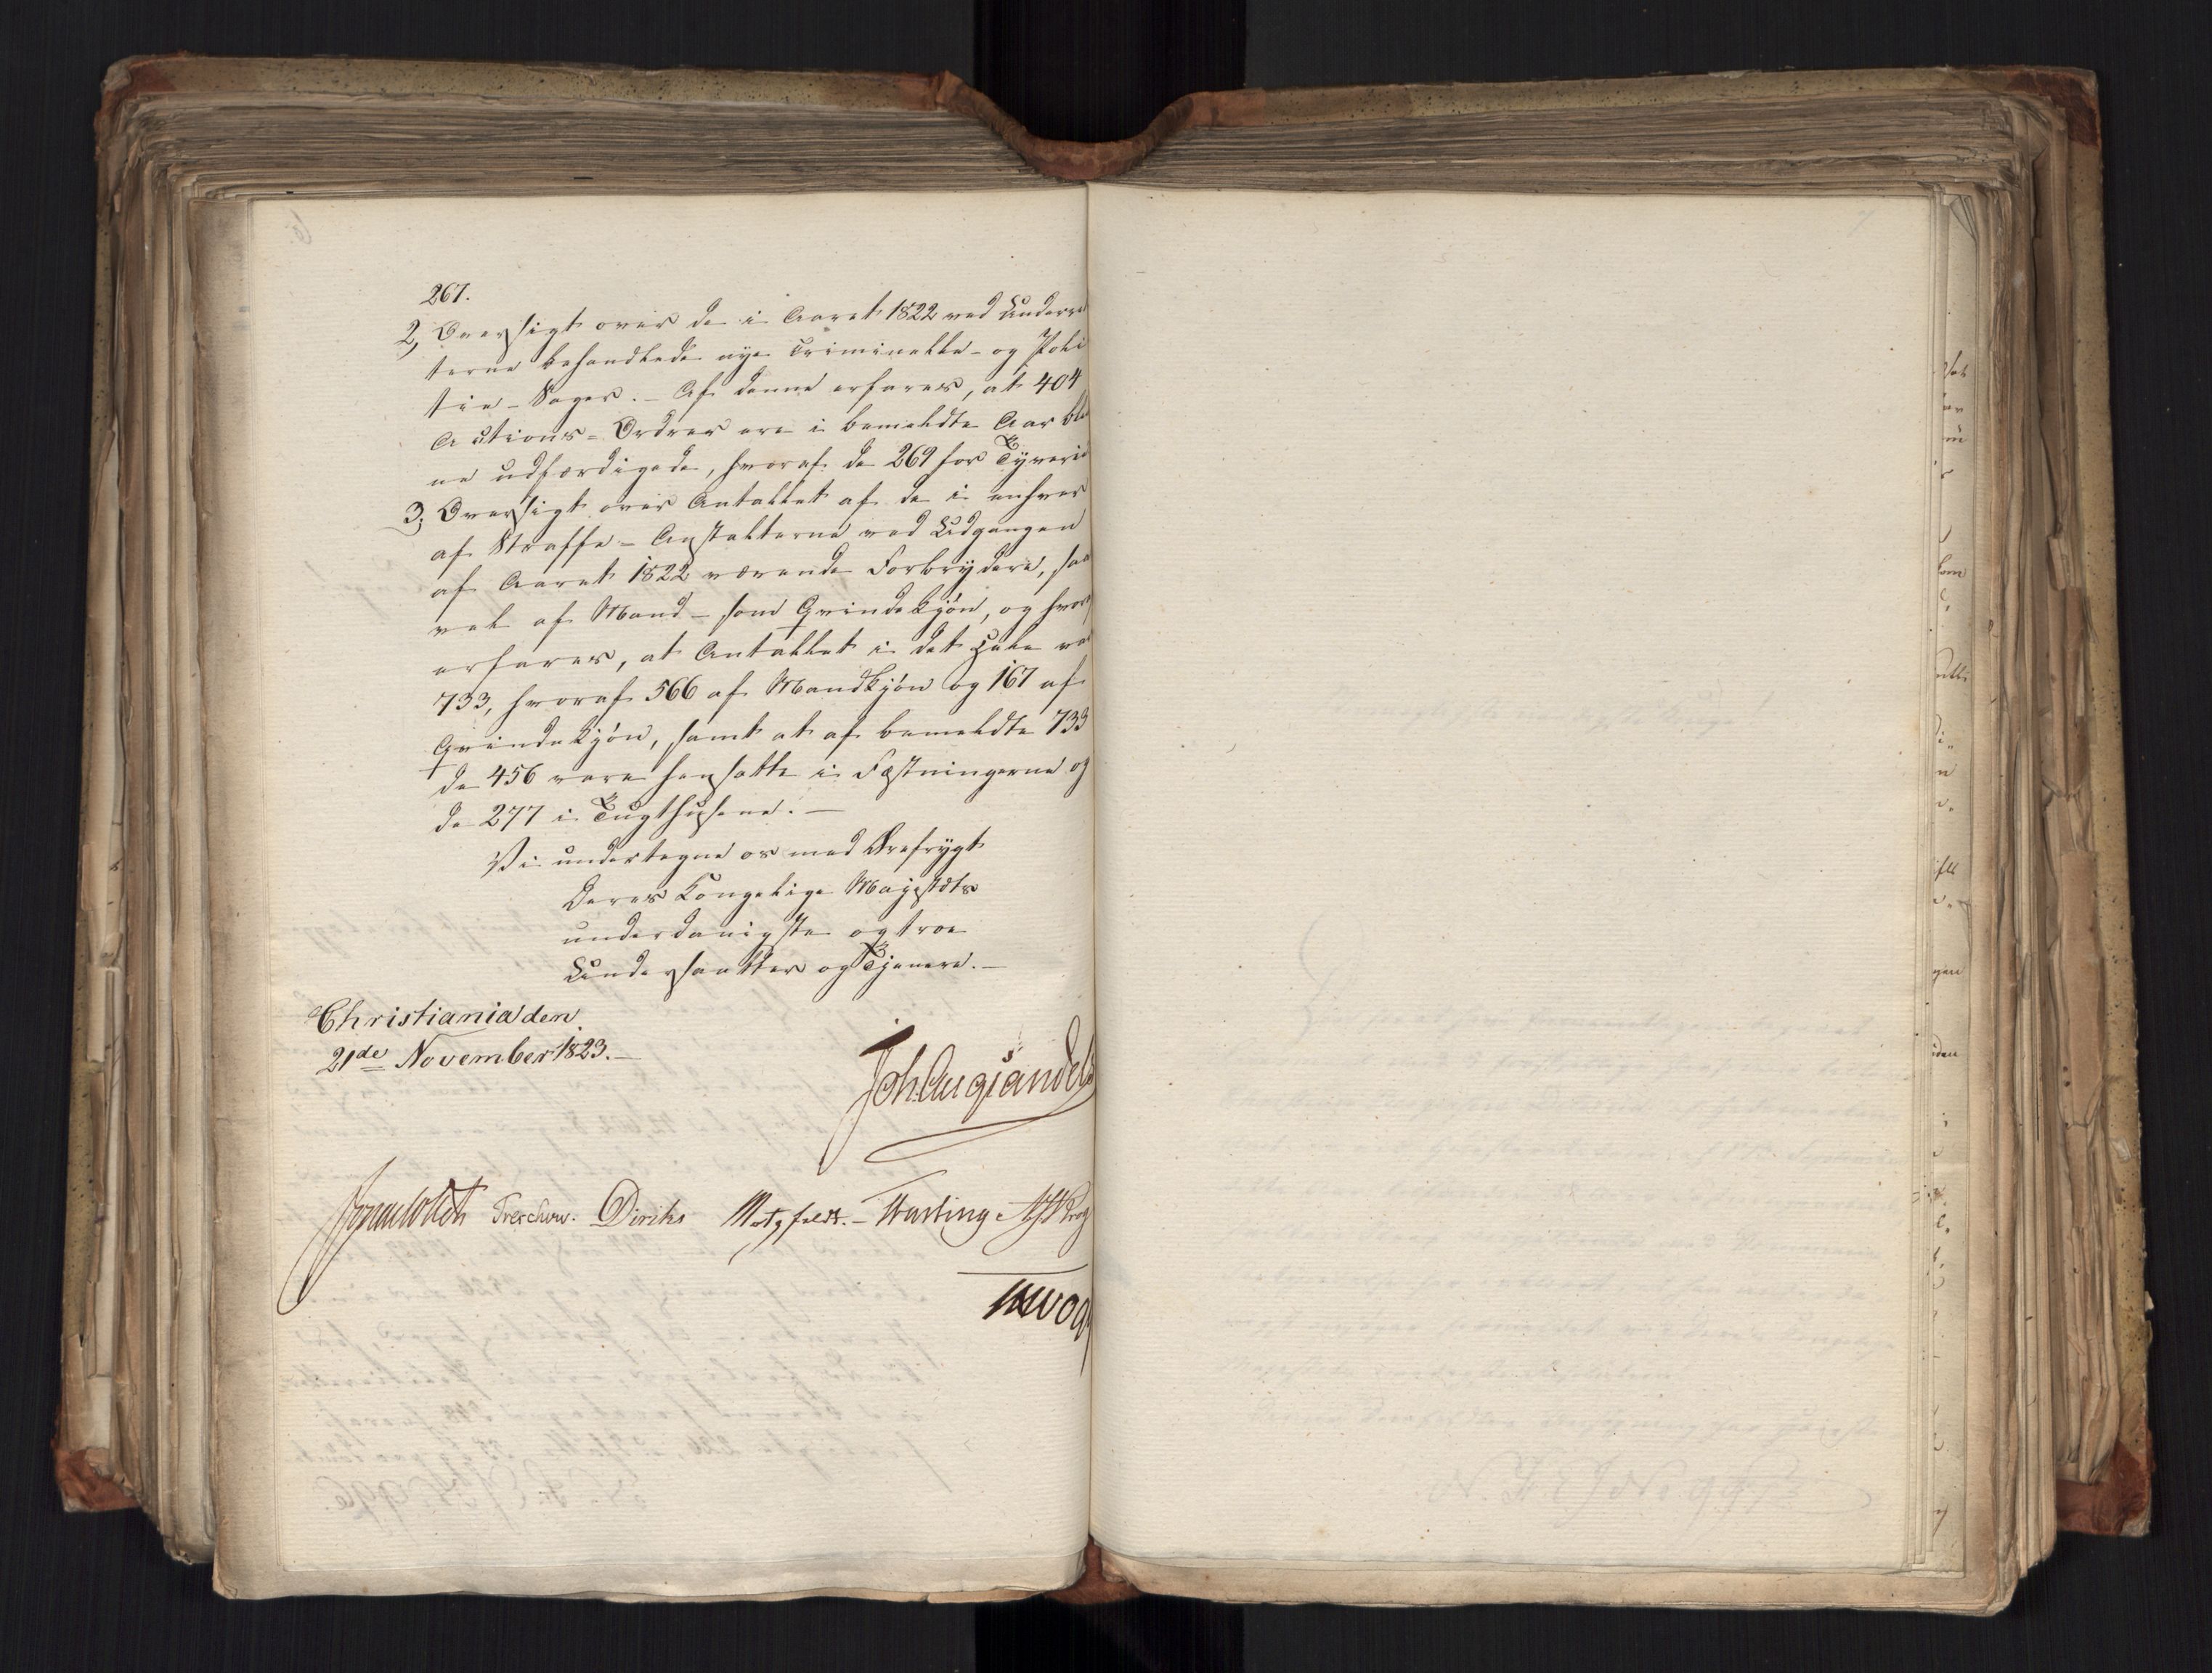 267.
2, Oversigt over de i Aaret 1822 ved Underre
terne behandlede nye Criminelle- og Poli
tie-Sager. - Af denne erfares, at 404
Actions-Ordrer ere i bemeldte Aar ble
ne udfærdigede, hvoraf de 269 for Tyverie
3, Oversigt over Antallet af de i enhver
af Straffe-Anstalterne ved Udgangen
af Aaret 1822 værende Forbrydere, saa
vel af Mand- som Qvindekjøn, og hvoraf
erfares, at Antallet i det Hele var
733, hvoraf 566 af Mandkjøn og 167 af
Qvindekjøn, samt at af bemeldte 733
de 456 vare hensatte i Fæstningerne og
de 277 i Tugthusene. -
Vi undertegne os med Ærefrygt
Deres Kongelige Majestæts
underdanigste og troe
Undersaatter og Tjenere. -
Christiania den
21de November 1823. -
Joh. Aug. Sandels
Jonas Collett Treschow. Diriks Motzfeldt. - Fasting. Krog
Vogt